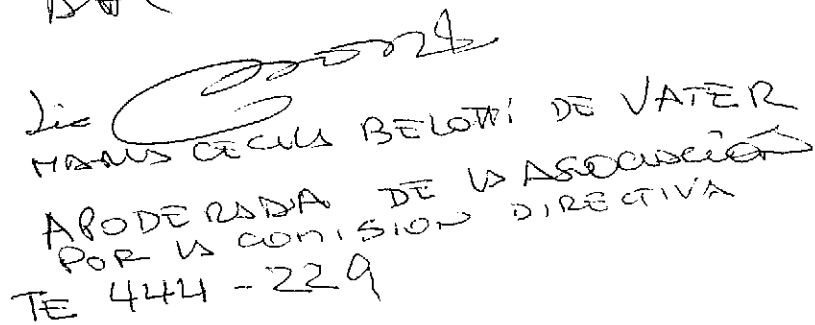 Lic
MARIA CECILIA BELOTTI DE VATER
APODERADA DE LA ASOCIACIÓN
POR LA COMISION DIRECTIVA
TE 444-229